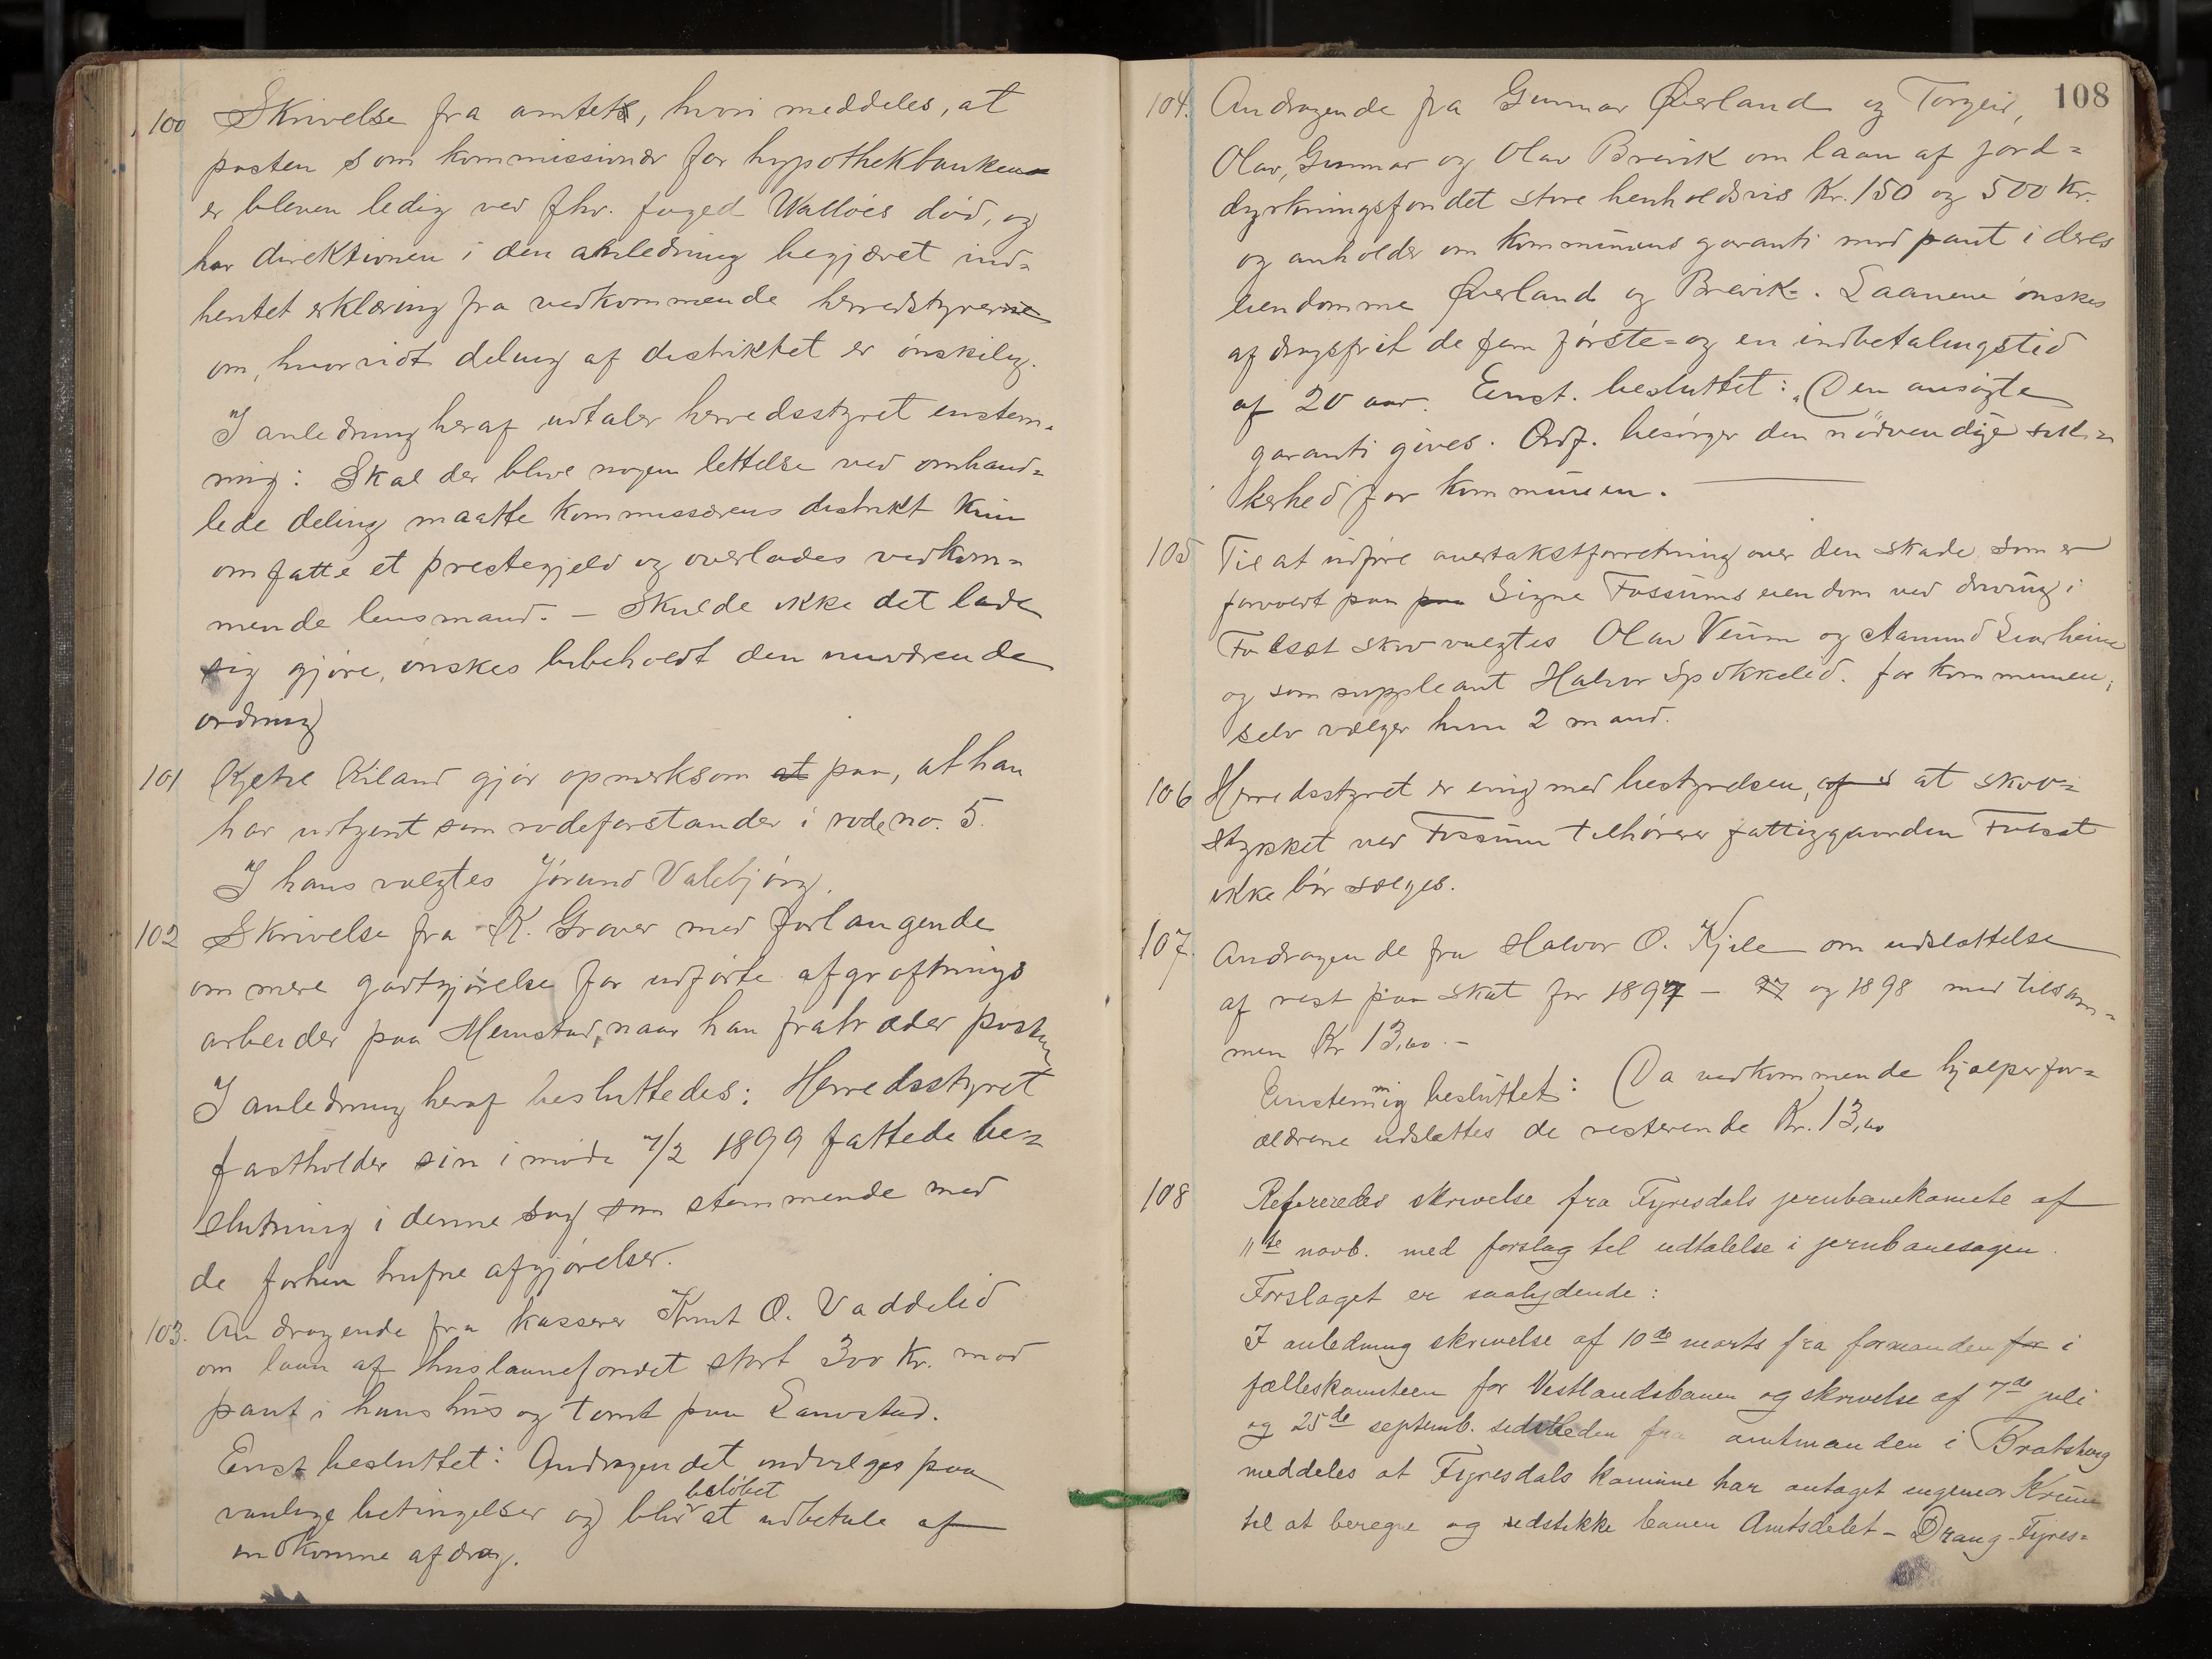 100 Skrivelse fra amtet, hvori meddeles, at
posten som kommissionær for hypothekbanken
er bleven ledig ved fhv. foged Walløes død, og
har direktionen i den anledning begjæret ind-
hentet erklæring fra vedkommende herredstyrer
om, hvorvidt deling af distriktet er ønskelig.
I anledning heraf udtaler herredsstyret enstem-
mig: Skal der blive nogen lettelse ved omhand-
lede deling maatte kommissærens distrikt kun
omfatte et prestegjeld og overlades vedkom-
mende lensmand. – Skulde ikke det lade
sig gjøre, ønskes bibeholdt den nuværende
ordning
101 Kjetil Kiland gjør opmerksom at paa, at han
har udtjent som rodeforstander i rode no. 5.
I hans valgtes Jørund Valebjørg.
102 Skrivelse fra K. Graver med forlangende
om mere godtgjørelse for udførte afgrøftnings
arbeider paa Memstad, naar han fratræder posten
I anledning heraf besluttedes: Herredsstyret
fastholder sin i møde 7/2 1899 fattede be-
slutning i denne sag som stemmende med
de forhen trufne afgjørelser.
103. Andragende fra kasserer Knut O. Vaddelid
om laan af huslaanefondet stort 300 Kr. mod
pant i hans hus og tomt paa Lanostad.
Enst besluttet: Andragendet indvilges paa
vanlige betingelser og blir beløbet at udbetale af
indkomne afdrag.
108
104. Andragende fra Gunnar Øverland og Torgeir,
Olav, Gunnar og Olav Breivik om laan af jord-
dyrkningsfondet store henholdsvis Kr. 150 og 500 Kr.
og anholder om kommunens garanti mod pant i deres
eiendomme Øverland og Breivik. Laanene ønskes
afdragsfrit de fem første - og en indbetalingstid
af 20 aar. Enst. besluttet: „Den ansøgte
garanti gives. Ordf. besørger den nødvendige sik-
kerhed for kommunen.
105 Til at udføre overtakstforretning over den skade som er
forvoldt paa paa Signe Fossums eiendom ved drivning i
Folsæt skov valgtes Olav Veum og Aamund Svarheim
og som suppleant Halvor Spokkelid. for kommunen;
selv vælger hun 2 mand.
106 Herredsstyret er enig med bestyrelsen, af s at skov-
stykket ved Fossum tilhører fattiggaarden Folsæt
ikke bør sælges.
107. Andragende fra Halvor O. Kjile om udslættelse
af rest paa skat for 1897 – 97 og 1898 med tilsam-
men Kr 13,60. –
Enstemmig besluttet: Da vedkommende hjælper for-
ældrene udslettes de resterende Kr. 13,60
108 Refereredes skrivelse fra Fyresdals jernbanekomite af
11te novb. med forslag til udtalelse i jernbanesagen.
Forslaget er saalydende:
I anledning skrivelse af 10de marts fra formanden for i
fælleskomiteen for Vestlandsbanen og skrivelse af 7de juli
og 25de septemb. sidstleden fra amtmanden i Bratsberg
meddeles at Fyresdals komune har antaget ingeniør Krum
til at beregne og udstikke banen Amtsdelet – Drang – Fyres-